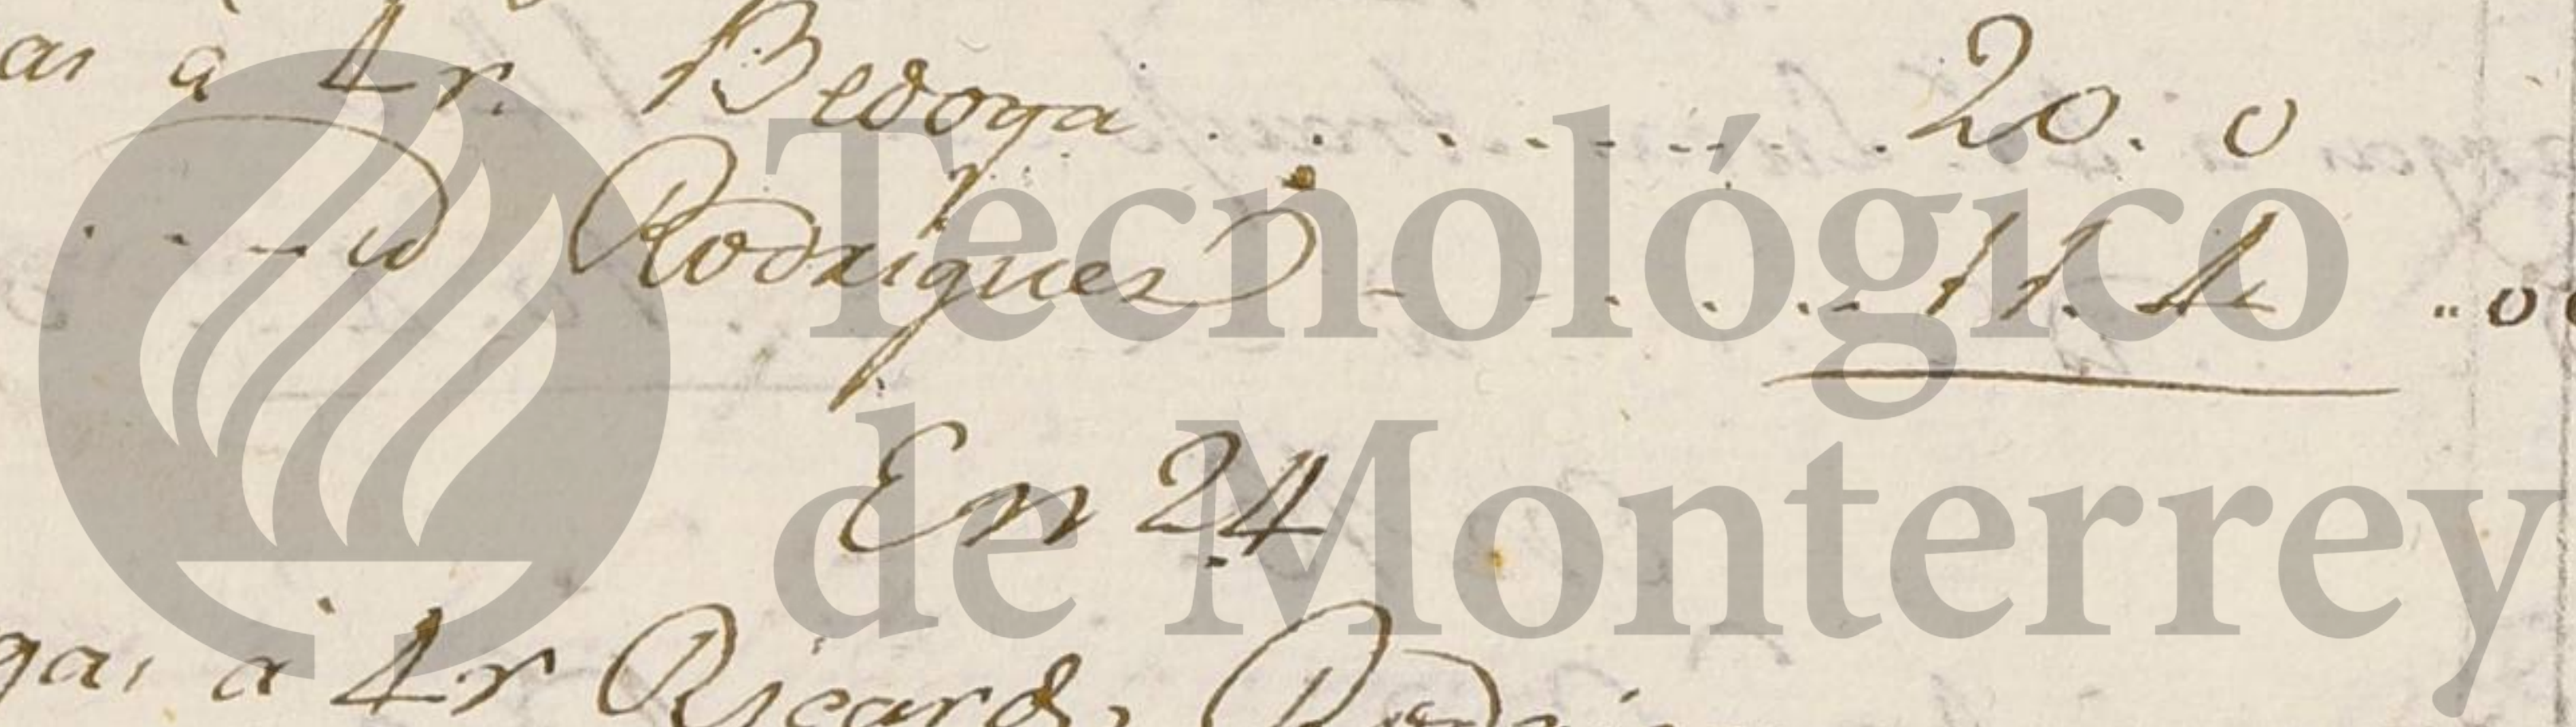 as à 4 r. Bedoya . . . . . . . . . 20. 0
. . . . id Rodriguez - - . . . . 11. 4 .. 0
En 24
gas à 4 r Ricardo Rodri
Tecnológico
de Monterrey